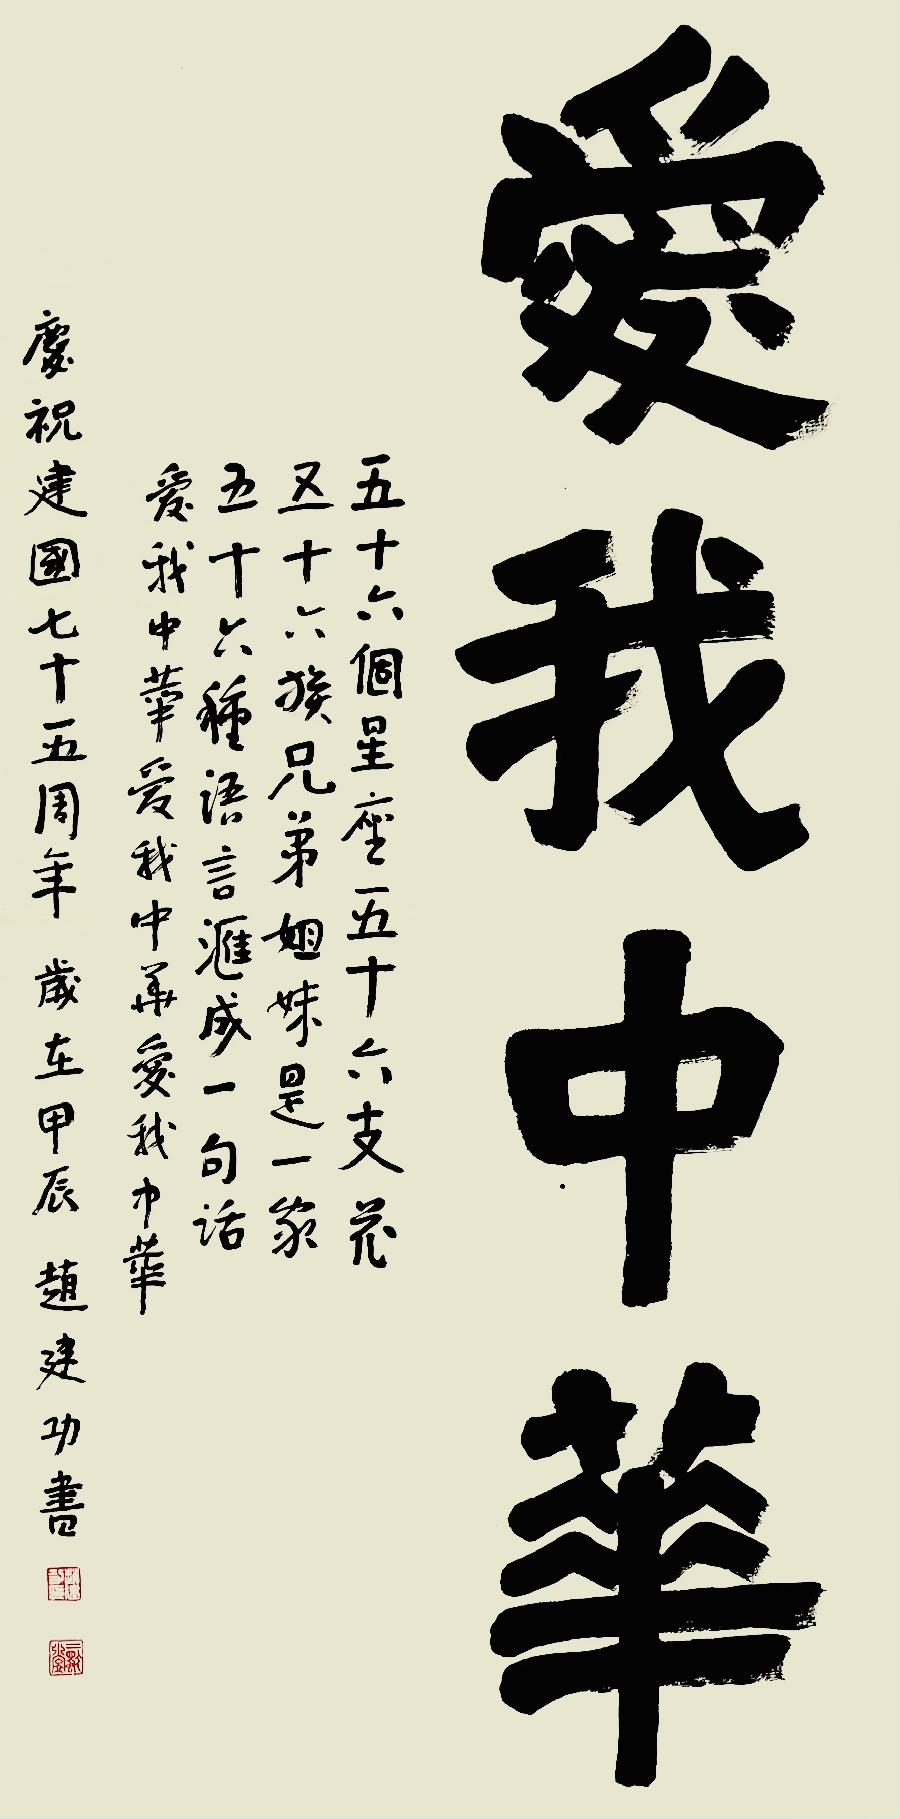 愛我中華
五十六個星座五十六支花
五十六族兄弟姐妹是一家
五十六種語言滙成一句話
愛我中華愛我中華愛我中華
慶祝建國七十五周年 歲在甲辰 趙建功書